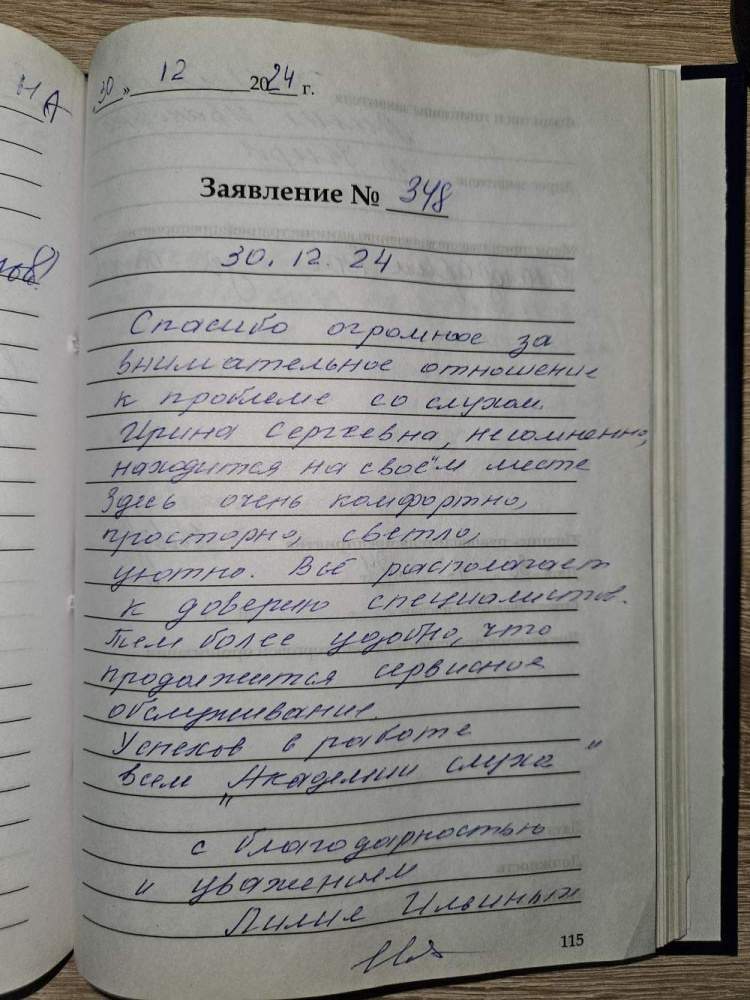 30 » 12 2024 г.
Заявление № 348
30.12.24
Спасибо огромное за
внимательное отношение
к проблеме со слухом.
Ирина Сергеевна, несомненно,
находится на своём месте
Здесь очень комфортно,
просторно, светло,
уютно. Всё располагает
к доверию специалистов.
Тем более удобно, что
продолжится сервисное
обслуживание.
Успехов в работе
всем „Академии слуха"
с благодарностью
и уважением
Лилия Ильиных
115